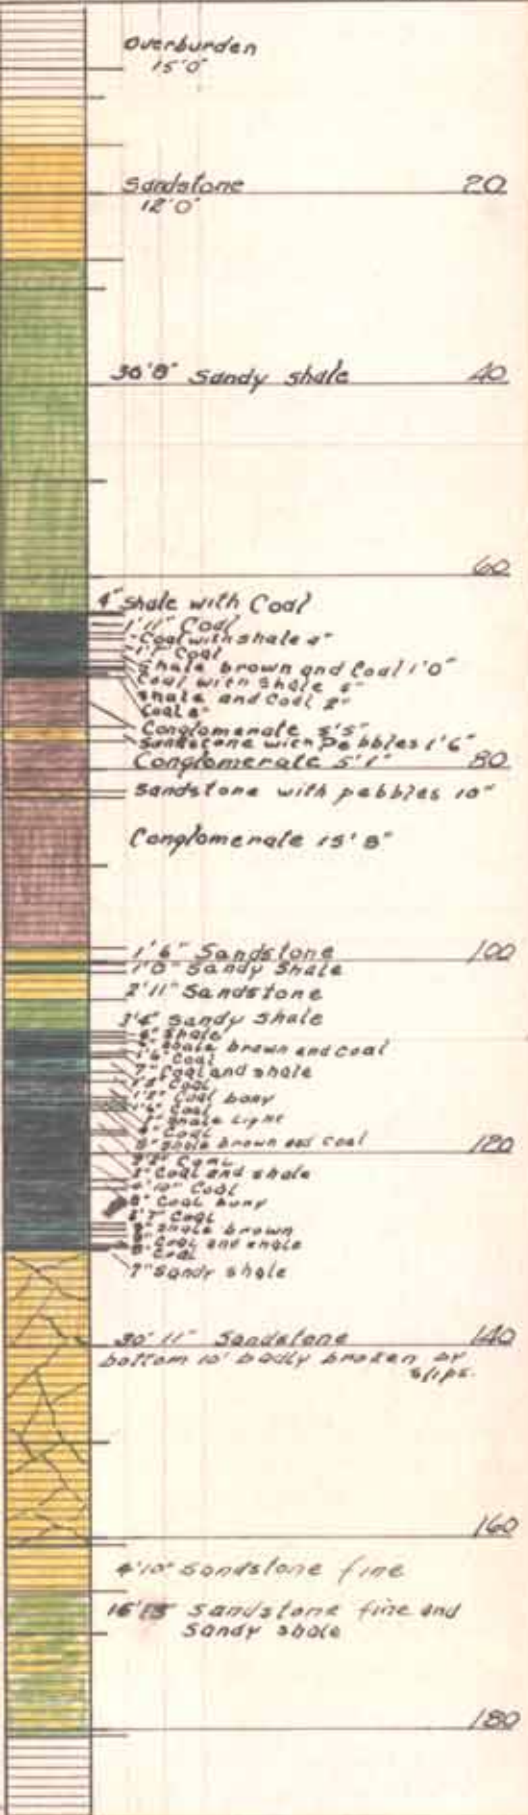 Overburden
15'0"
Sandstone 20
12'0"
36'8" Sandy shale 40
60
4" Shale with Coal
1'11" Coal
Coal with shale 4"
1'7" Coal
Shale brown and Coal 1'0"
Coal with Shale
Shale and Coal 2"
Coal
Conglomerate 5'5"
Sandstone with Pebbles 1'6"
Conglomerate 5'1" 80
Sandstone with pebbles 10"
Conglomerate 15'8"
1'6" Sandstone 100
1'0" Sandy Shale
2'11" Sandstone
Sandy Shale
Shale
Shale brown and coal
Coal
Coal and shale
Coal
Coal bony
Coal
Shale Light
Coal
Shale brown and Coal 120
Coal
Coal and shale
Coal
8" Coal bony
Coal
Shale brown
Coal and shale
Coal
7" Sandy shale
30'11" Sandstone 140
bottom 10' badly broken by
slips.
160
4'10" Sandstone fine
Sandstone fine and
Sandy shale
180